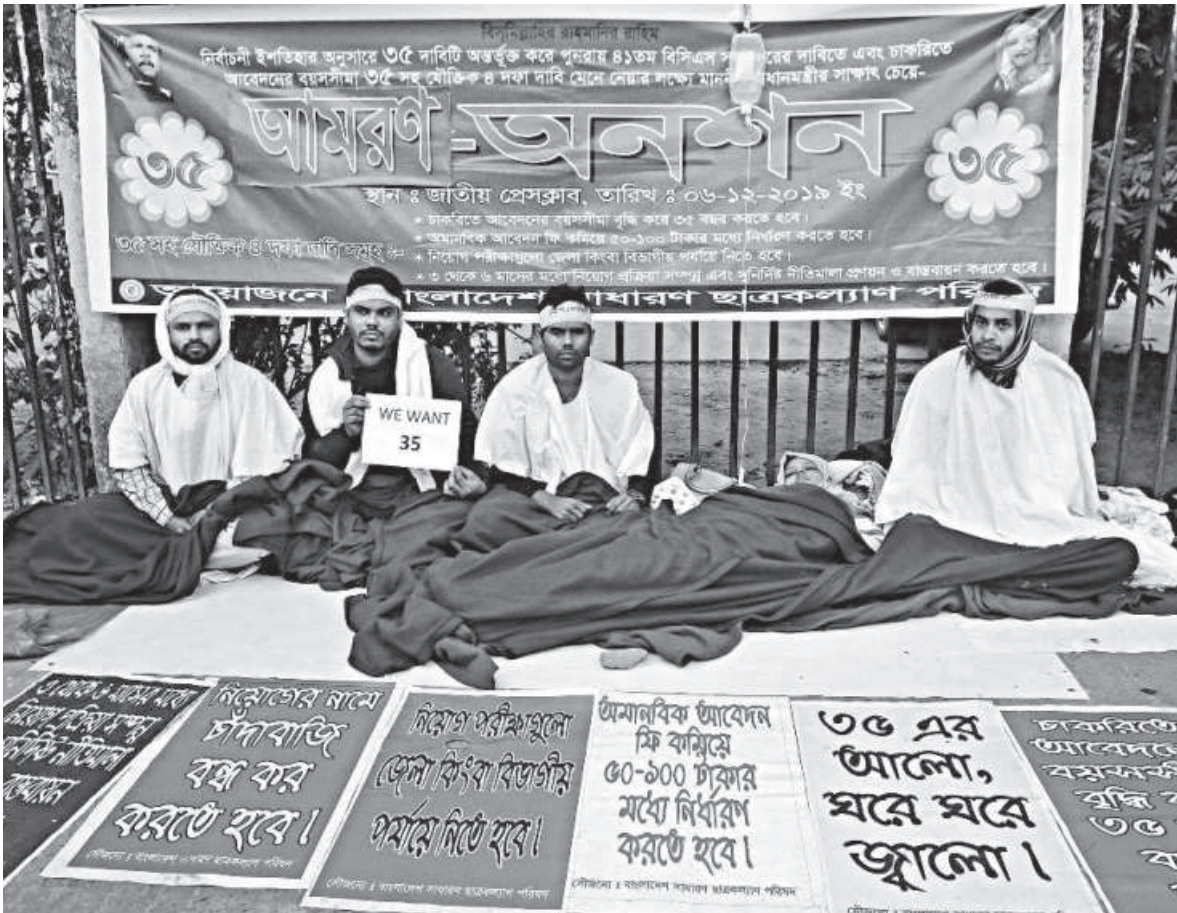 বিসমিল্লাহির রাহমানির রাহিম
নির্বাচনী ইশতিহার অনুসারে ৩৫ দাবিটি অন্তর্ভূক্ত করে পুনরায় ৪১তম বিসিএস দাবিতে এবং চাকরিতে
আবেদনের বয়সসীমা ৩৫ সহ যৌক্তিক ৪ দফা দাবি মেনে নেয়ার লক্ষ্যে সাক্ষাৎ চেয়ে-
আমরণ-অনশন
৩৫
৩৫
স্থান ঃ জাতীয় প্রেসক্লাব, তারিখ ঃ ০৬-১২-২০১৯ ইং
* চাকরিতে আবেদনের বয়সসীমা বৃদ্ধি করে ৩৫ বছর করতে হবে।
৩৫ সহ যৌক্তিক ৪ দফা দাবি সমূহ ঃ-
* অমানবিক আবেদন ফি কমিয়ে ৫০-১০০ টাকার মধ্যে নির্ধারণ করতে হবে।
* নিয়োগ পরীক্ষাগুলো জেলা কিংবা বিভাগীয় পর্যায়ে নিতে হবে।
* ৩ থেকে ৬ মাসের মধ্যে নিয়োগ প্রক্রিয়া সম্পন্ন এবং সুনির্দিষ্ট নীতিমালা প্রণয়ন ও বাস্তবায়ন করতে হবে।
সাধারণ ছাত্রকল্যাণ
WE WANT
35
৩ থেকে ৬ মাসের মধ্যে
নিয়োগ
নিয়োগের নামে
চাঁদাবাজি
বন্ধ কর
করতে হবে।
সৌজন্যে ঃ বাংলাদেশ সাধারণ ছাত্রকল্যাণ পরিষদ
নিয়োগ পরীক্ষাগুলো
জেলা কিংবা বিভাগীয়
পর্যায়ে নিতে হবে।
সৌজন্যে ঃ বাংলাদেশ সাধারণ ছাত্রকল্যাণ পরিষদ
অমানবিক আবেদন
ফি কমিয়ে
৫০-১০০ টাকার
মধ্যে নির্ধারণ
করতে হবে।
সৌজন্যে ঃ বাংলাদেশ সাধারণ ছাত্রকল্যাণ পরিষদ
৩৫ এর
আলো,
ঘরে ঘরে
জ্বালো।
চাকরিতে
৩৫